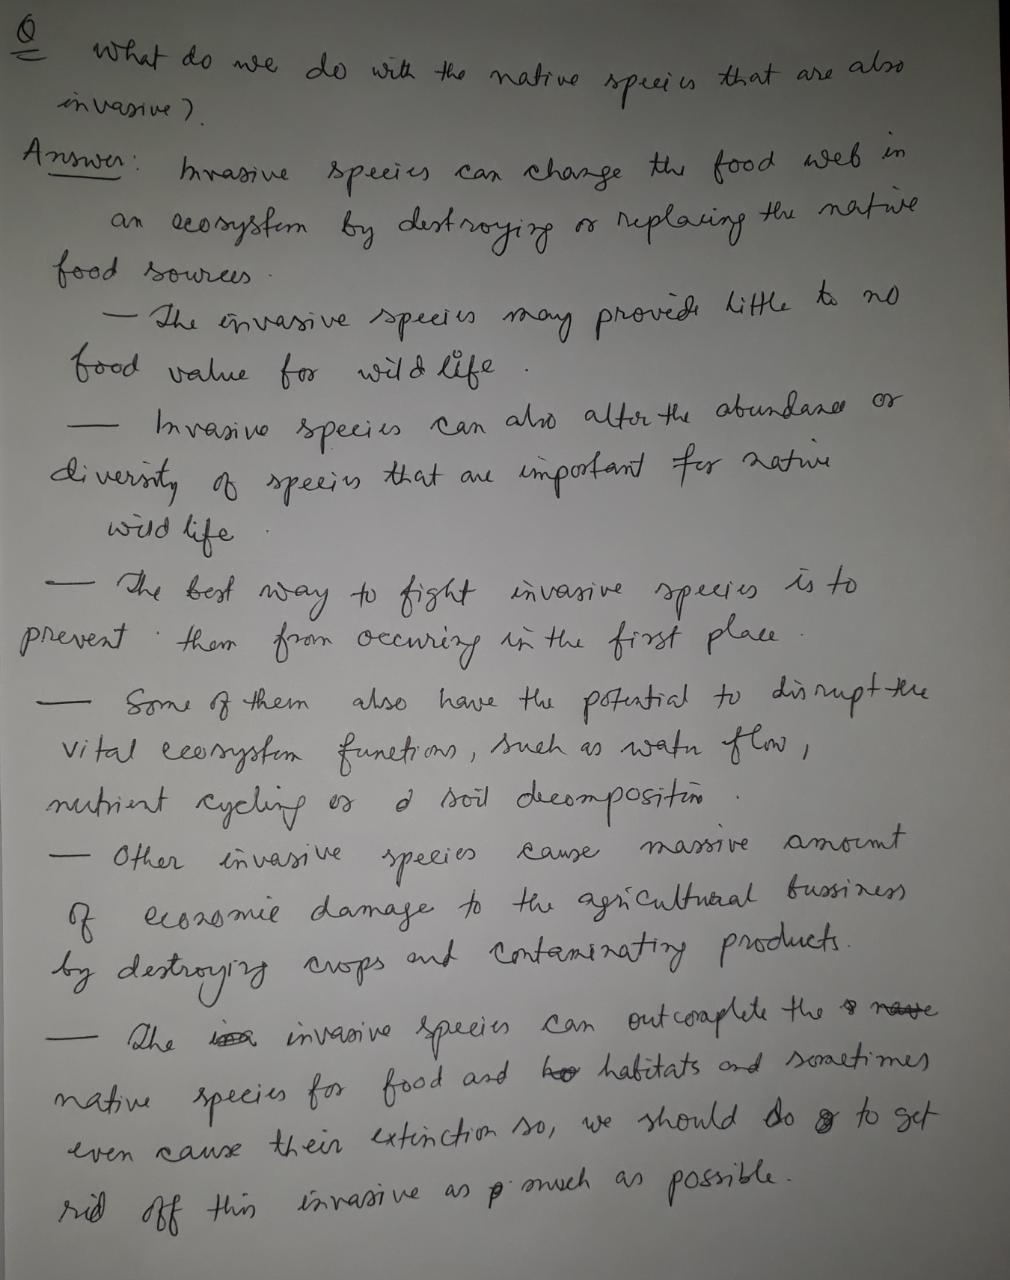 Q
What do we do with the native species that are also
invasive?
Answer: Invasive species can change the food web in
an ecosystem by destroying or replacing the native
food sources.
— The invasive species may provide little to no
food value for wild life.
— Invasive species can also alter the abundance or
diversity of species that are important for native
wild life.
— The best way to fight invasive species is to
prevent them from occuring in the first place.
— Some of them also have the potential to disrupt the
vital ecosystem functions, such as water flow,
nutrient cycling or soil decomposition.
— Other invasive species cause massive amount
of economic damage to the agricultural bussiness
by destroying crops and contaminating products.
— The invasive species can outcomplete the
native species for food and habitats and sometimes
even cause their extinction so, we should do to get
rid off this invasive as much as possible.